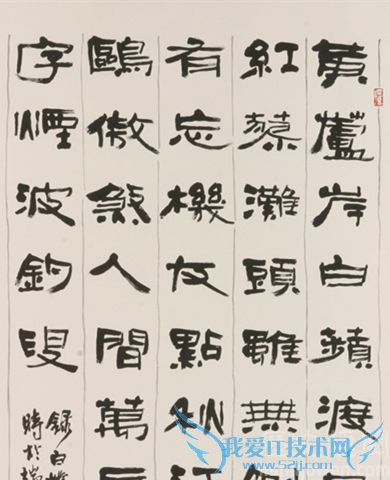 黃蘆岸白蘋渡
紅蓼灘頭雖無
有忘機友點秋江
鷗傲煞人間萬
字煙波釣叟
錄白
時於
我爱IT技术网
www.52ij.com